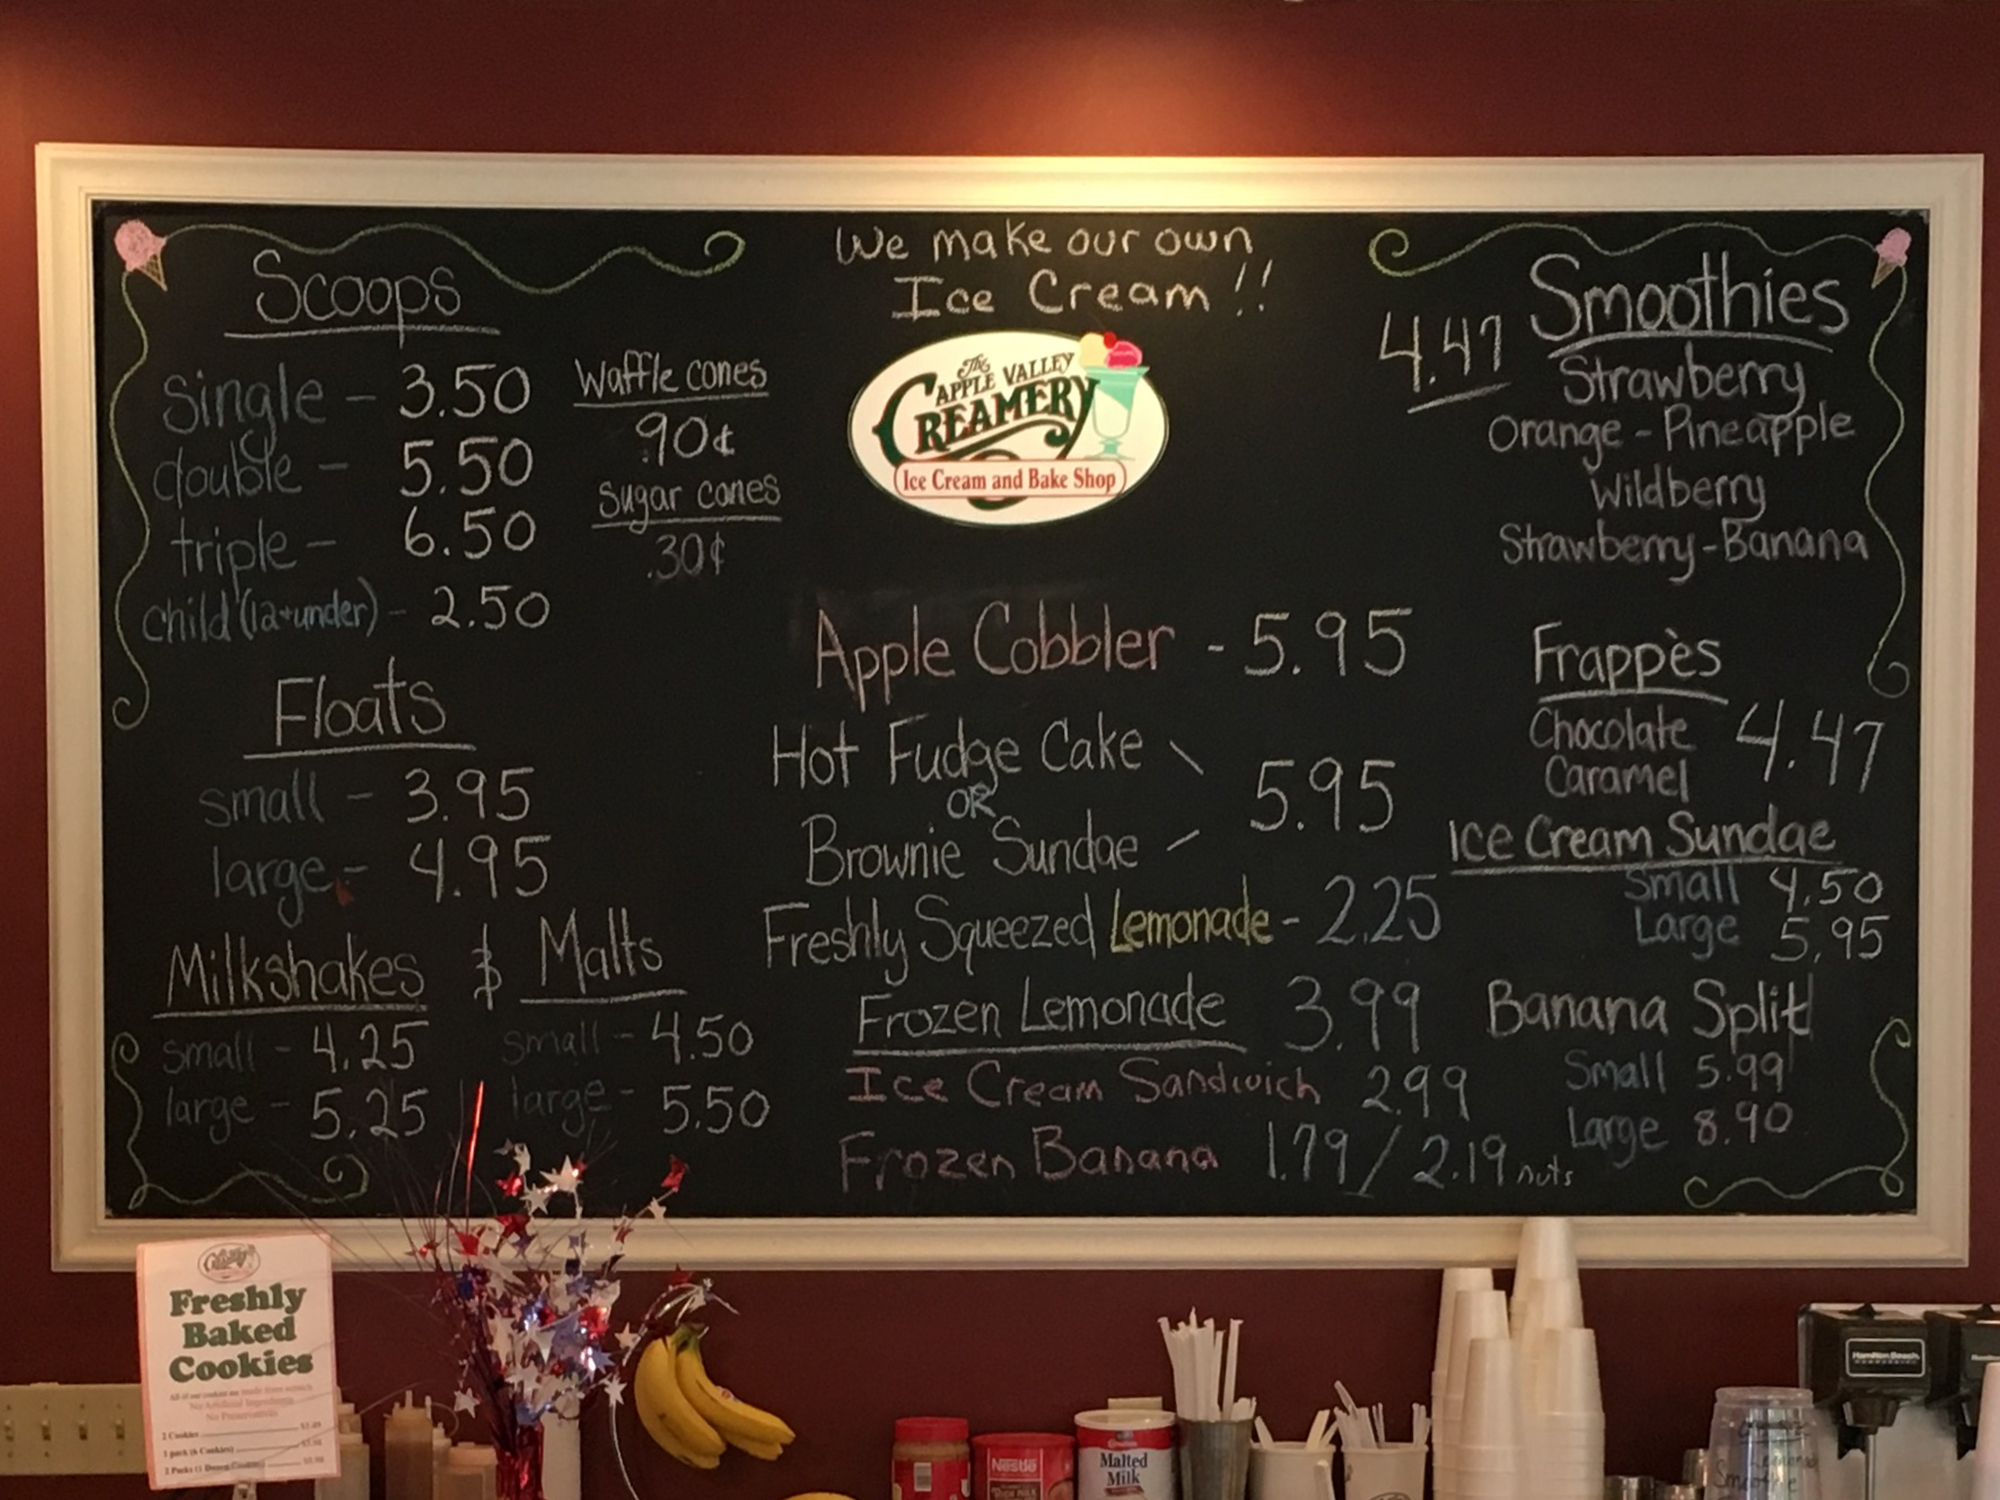 We make our own
Ice Cream!!
The
APPLE VALLEY
CREAMERY
Ice Cream and Bake Shop
Scoops
single - 3.50
double - 5.50
triple - 6.50
child (12+under) - 2.50
Waffle cones
.90¢
Sugar cones
.30¢
Floats
small - 3.95
large - 4.95
Milkshakes & Malts
small - 4.25 small - 4.50
large - 5.25 large - 5.50
Apple Cobbler - 5.95
Hot Fudge Cake
OR 5.95
Brownie Sundae
Freshly Squeezed Lemonade - 2.25
Frozen Lemonade 3.99
Ice Cream Sandwich 2.99
Frozen Banana 1.79 / 2.19 nuts
4.47 Smoothies
Strawberry
Orange - Pineapple
Wildberry
Strawberry - Banana
Frappès
Chocolate 4.47
Caramel
Ice Cream Sundae
Small 4.50
Large 5.95
Banana Split
Small 5.99
Large 8.90
Freshly
Baked
Cookies
All of our cookies are made from scratch
No Artificial Ingredients
No Preservatives
2 Cookies
1 pack (6 Cookies)
2 Packs (1 Dozen Cookies)
Nestle
Malted
Milk
Hamilton Beach
COMMERCIAL
Smoothie